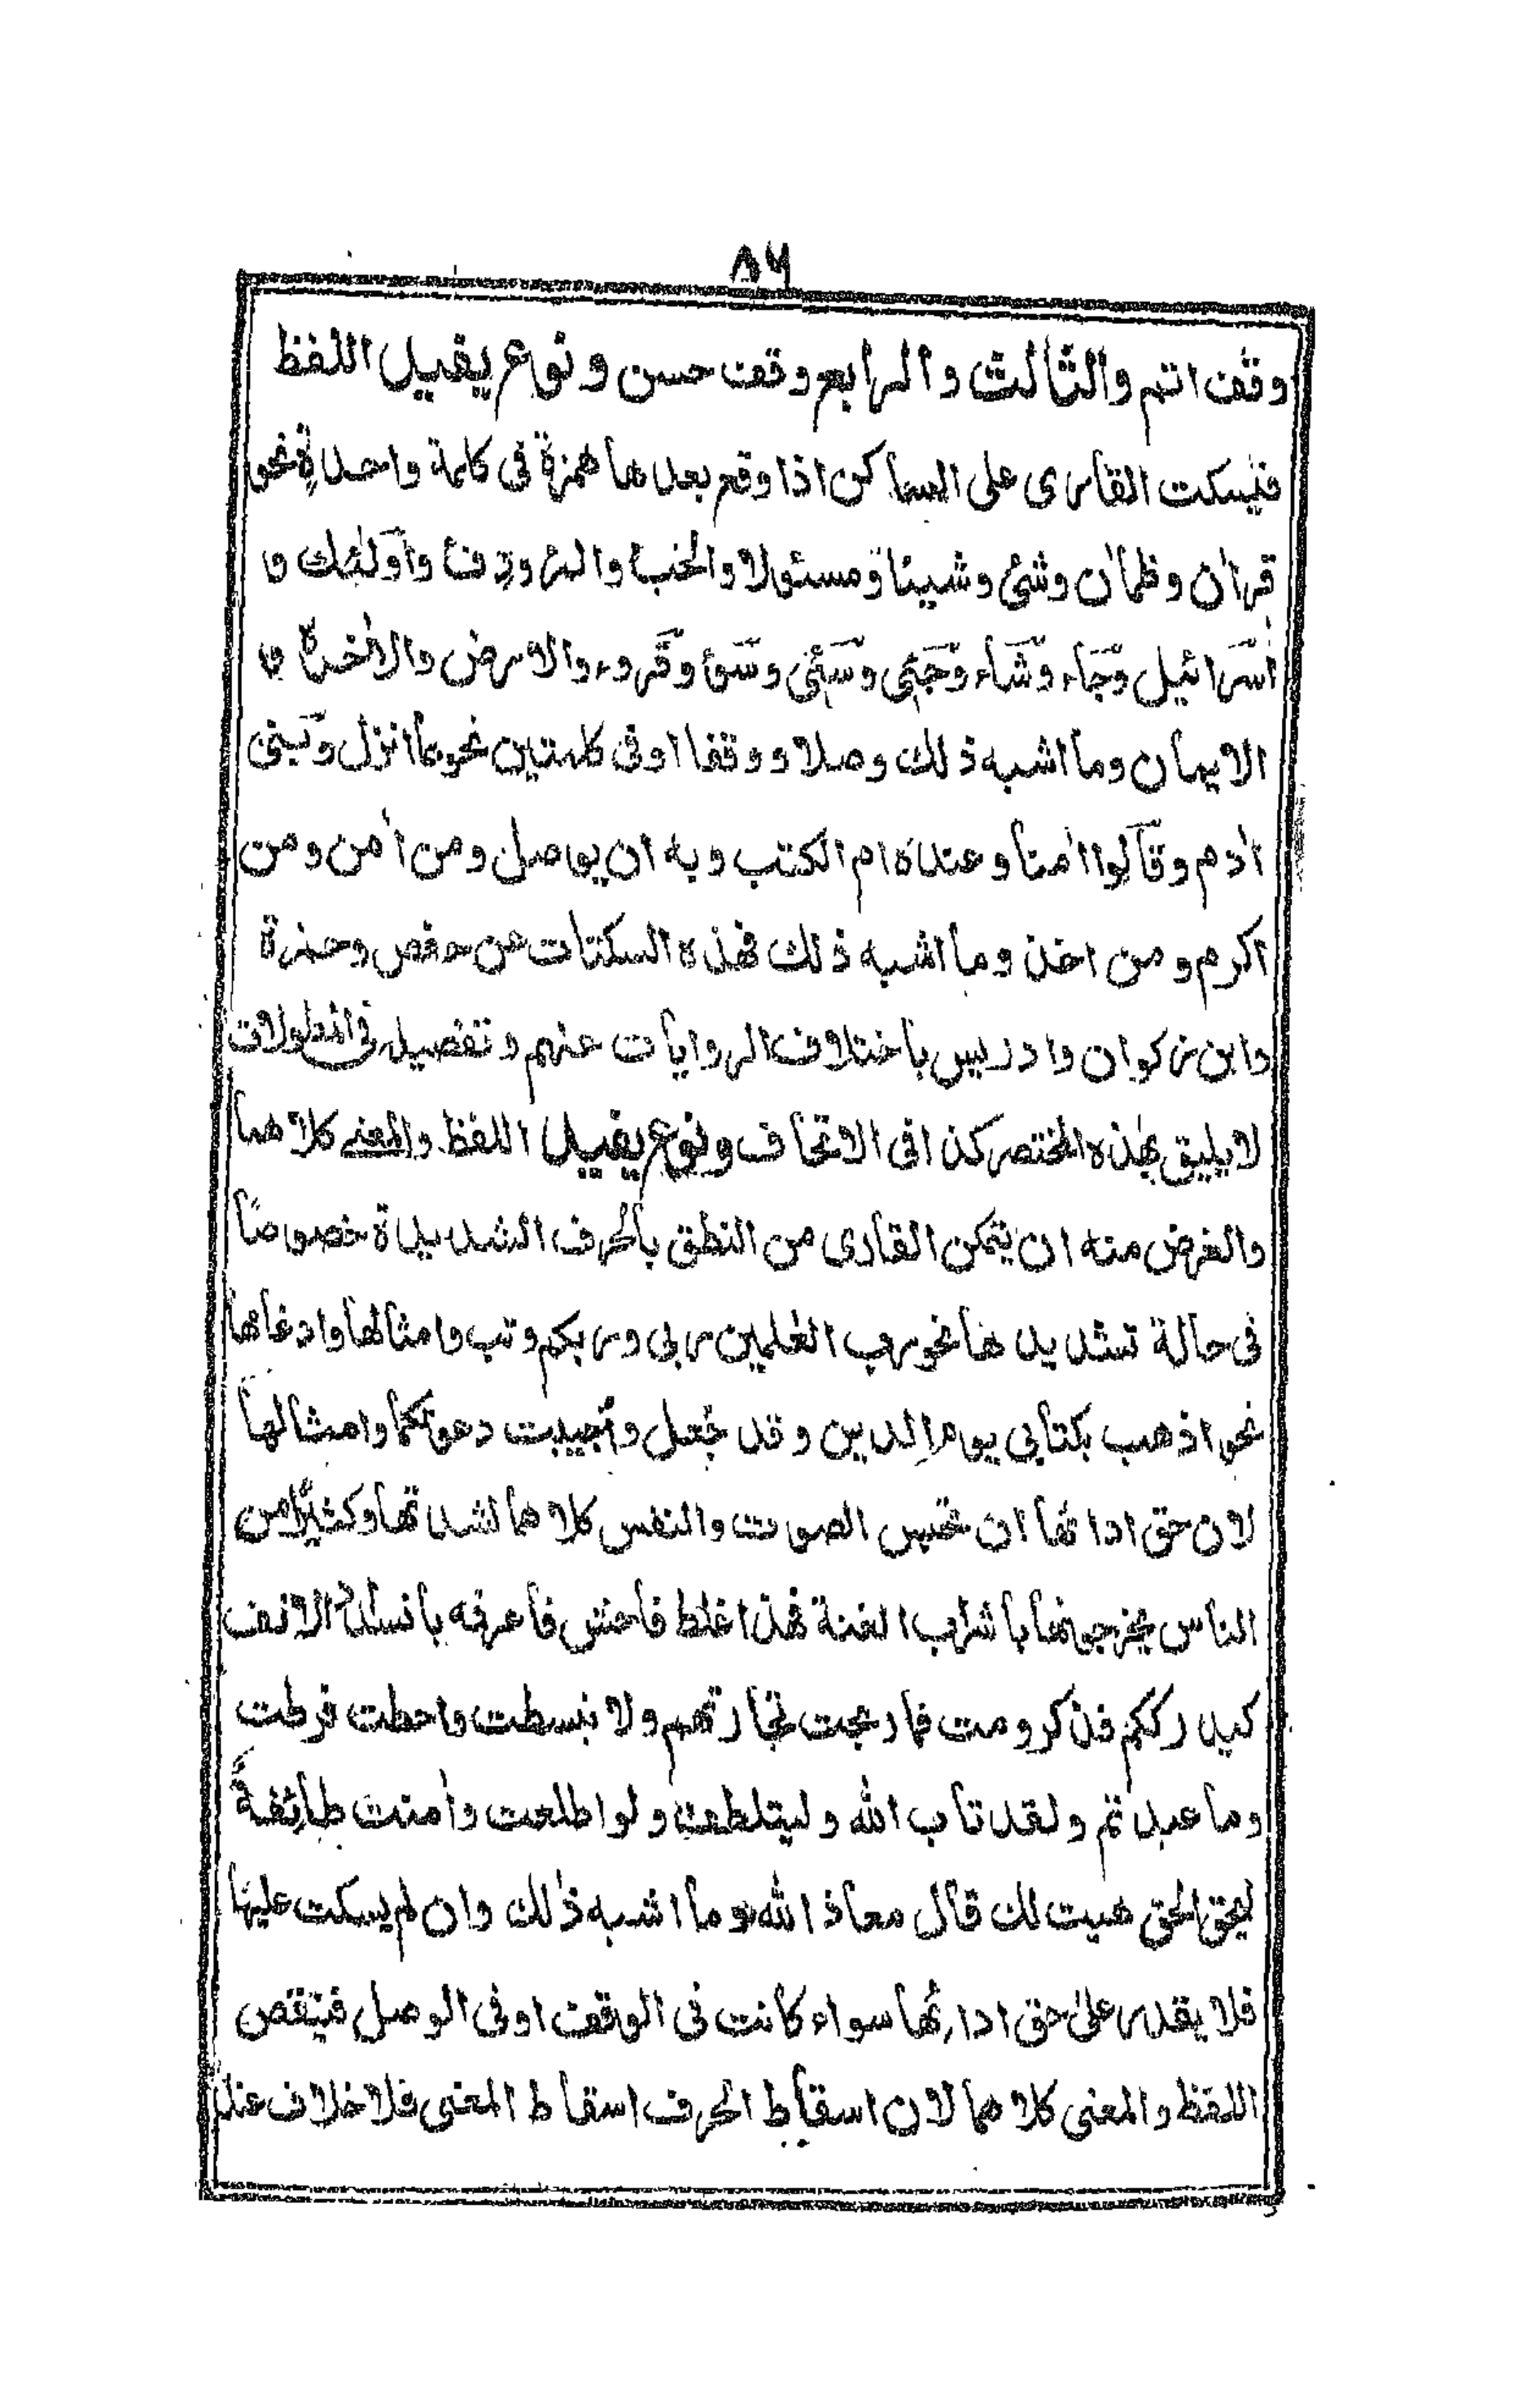 ٨٦
وقف اتم والثالث والرابع وقف حسن ونوع يفيد اللفظ
فيسكت القاري على الساكن اذا وقع بعدها همزة في كلمة واحدة نحو
قران وظمان وشئ وشيئا ومسئولا والخبأ والمرء ودفأ واولئك و
اسرائيل وجاء وشاء وجئ وسئ وسوء وقروء والارض والاخرة و
الايمان وما اشبه ذلك وصلا ووقفا او في كلمتين نحو بما انزل وبني
ادم وقالوا امنا وعنده ام الكتب وبه ان يوصل ومن امن ومن
اكرم ومن اخذ وما اشبه ذلك فهذه السكتات عن حفص وحمزة
وابن ذكوان وادريس باختلاف الروايات عنهم وتفصيله في المطولات
لا يليق بهذه المختصر كذا في الاتحاف ونوع يفيد اللفظ والمعنى كلاهما
والغرض منه ان يتمكن القاري من النطق بالحرف الشديدة خصوصًا
في حالة تشديدها نحو رب العلمين ربي وربكم وتب وامثالها وادغامها
نحو اذهب بكتابي يوم الدين وقد جعل واجيبت دعوتكما وامثالها
لان حق ادائها ان تحتبس الصوت والنفس كلاهما لشدتها وكثيرًا من
الناس يخرجونها باشراب الغنة فهذا غلط فاحش فاعرفه بانسداد الانف
كيدركم فذكر ومت فما ربحت تجارتهم ولا بسطت واحطت فرطت
وما عبدتم ولقد تاب الله وليتلطف ولو اطلعت وامنت طائفةً
ليحق الحق هيت لك قال معاذ الله وما اشبه ذلك وان لم يسكت عليها
فلا يقدر على حق ادائها سواء كانت في الوقف او في الوصل فينقص
اللفظ والمعنى كلاهما لان اسقاط الحرف اسقاط المعنى فلا خلاف عند